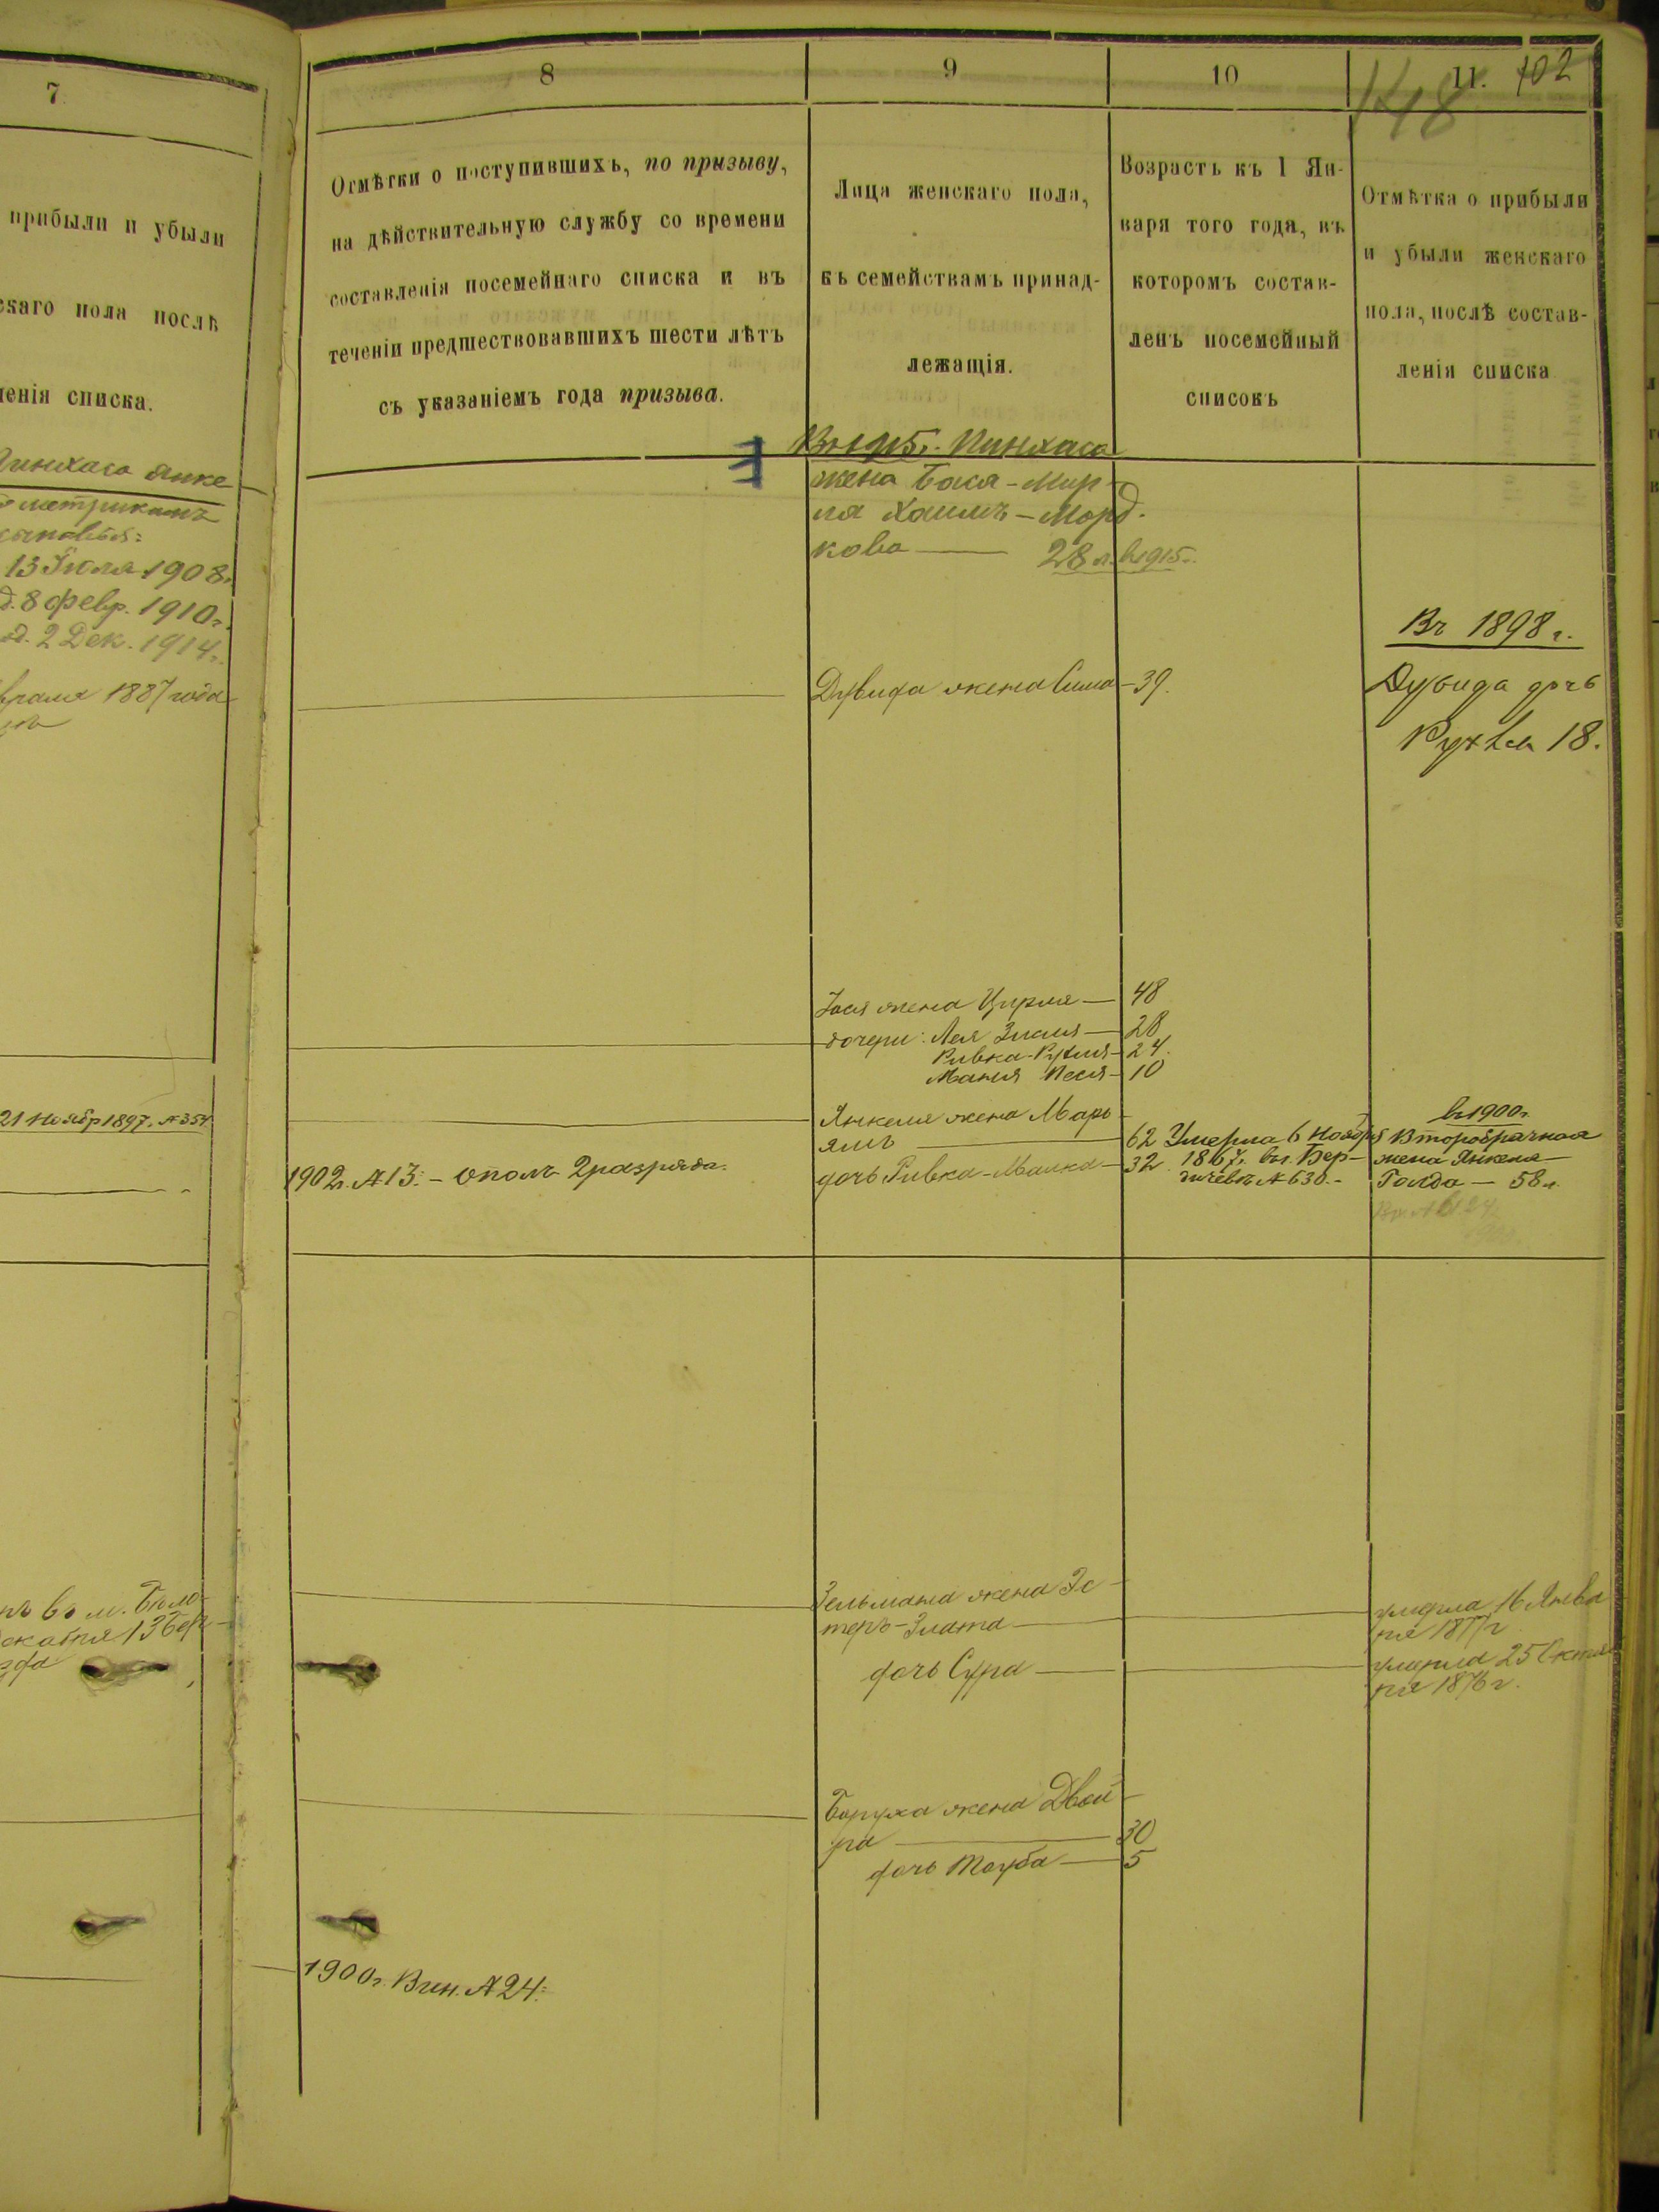 7
прибыли и убыли
скаго пола послѣ
ленія списка.
Пинхаса Янке
метрикамъ
сыновья:
13 Іюля 1908г.
8 февр. 1910г.
2 Дек. 1914г.
враля 1887 года
21 Ноябр 1897. №354
въ м. Бѣло-
8
Отмѣтки о поступившихъ, по призыву,
на дѣйствительную службу со времени
составленія посемейнаго списка и въ
теченіи предшествовавшихъ шести лѣтъ
съ указаніемъ года призыва.
1902г. №13. – ополч. 2 разряда.
1900г. Вин. №24.
9
Лица женскаго пола,
къ семействамъ принад-
лежащія.
Въ 1915г. Пинхаса
жена Бася-Мир-
ля Хаимъ-Морд-
кова — 28 л. въ 1915г.
Дувида жена Сима – 39.
жена Цирля — 48
дочери: Лея Злата — 28
Ривка-Рухля – 24.
Маня Песя – 10
Янкеля жена Марь-
ямъ — 62
дочь Ривка-Малка – 32.
Зельмана жена Эс-
теръ-Злата —
дочь Сура —
Боруха жена Двой-
ра — 30
дочь Тауба — 5
10
Возрастъ къ 1 Ян-
варя того года, въ
которомъ состав-
ленъ посемейный
списокъ
Умерла 6 Ноября
1867г. въ г. Бер-
дичевѣ №630.-
11. 102
148
Отмѣтка о прибыли
и убыли женскаго
пола, послѣ состав-
ленія списка
Въ 1898 г.
Дувида дочь
Рухля 18.
въ 1900г.
Второбрачная
жена Янкеля
Голда — 58 л.
умерла 16 Янва
ря 1877г
умерла 25 Октя
ря 1876 г.